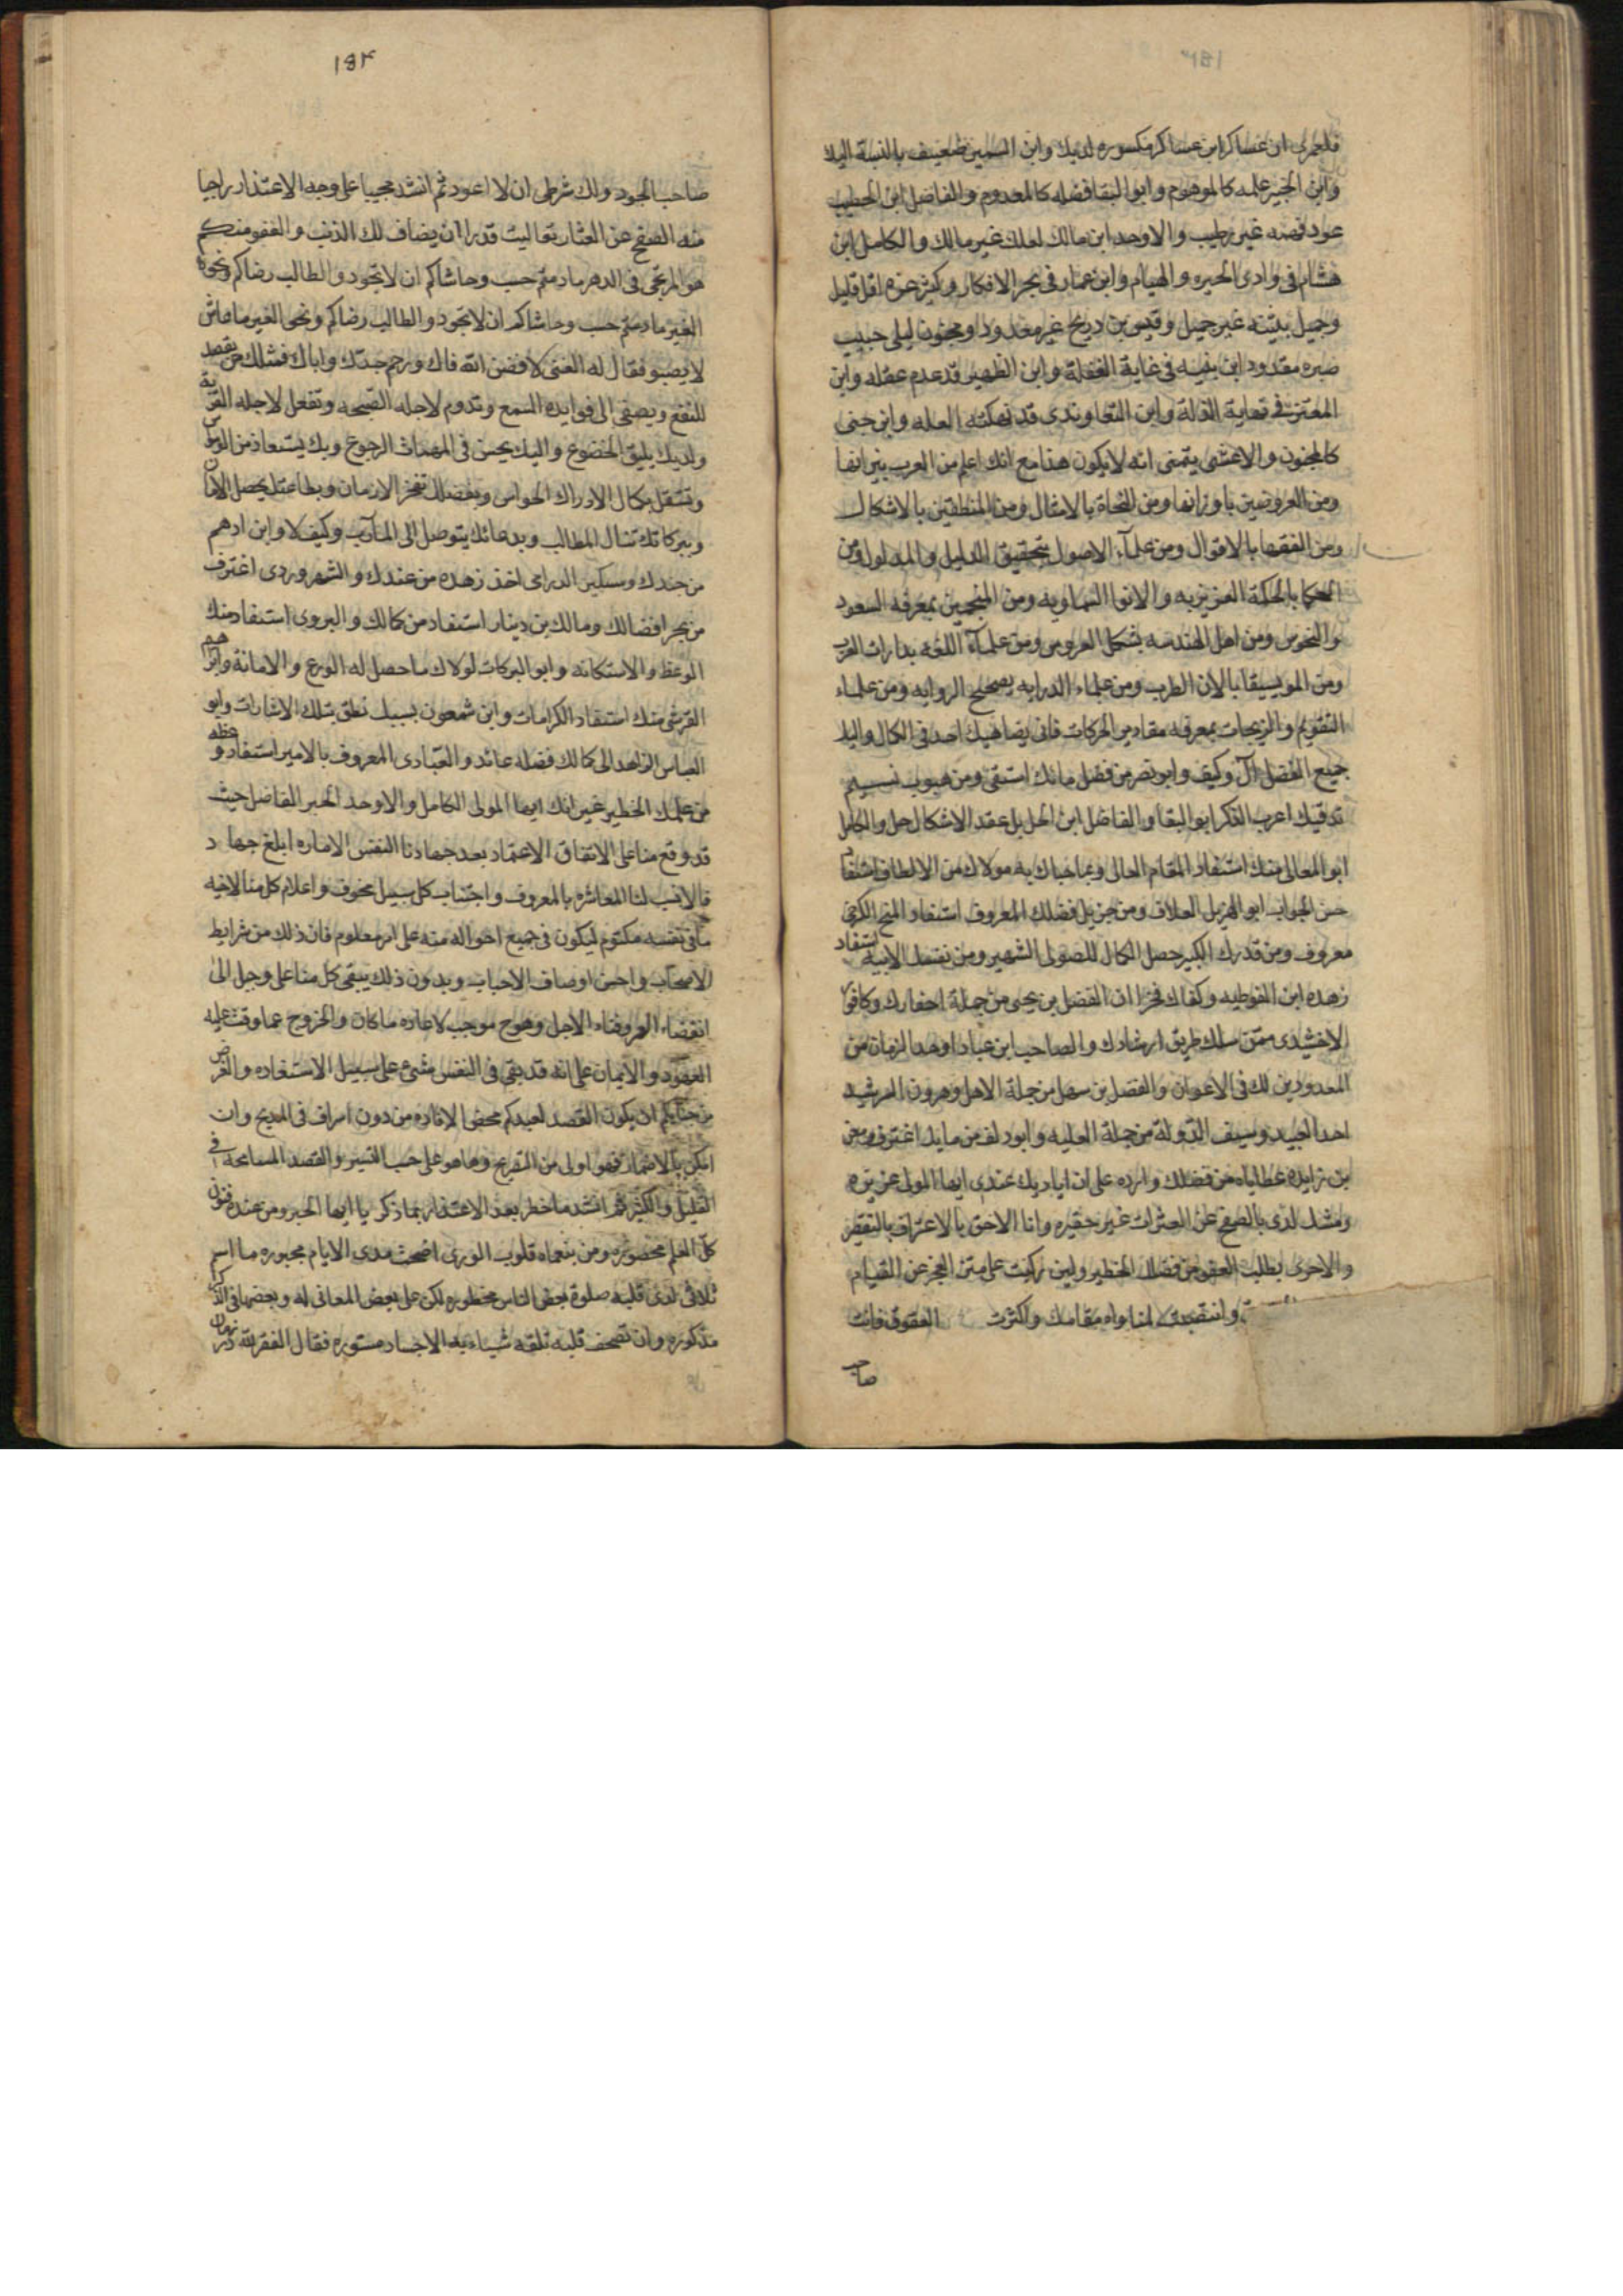 فلعمرى ان عساكر ابن عساكر مكسوره لديك وابن السمين ضعيف بالنسبة اليك
وابن الخبير علمه كالموهوم وابو البقا فضله كالمعدوم والفاضل ابن الخطيب
عود فضه غير رطيب والاوحد ابن مالك لعلك غير مالك والكامل ابن
هشام فى وادى الحيره والهيام وابن عمار فى بحر الافكار وكثير عزه اقل قليل
وجميل بثينه غير جميل وقيس بن دريح غير معدود ومجنون ليلى حبيب
صبره مفقود ابن نفيسه فى غاية الغفلة وابن الظهير قد عدم عقله وابن
المعتز فى نهاية الذلة وابن قد نهكته العله وابن جنى
كالمجنون والاعشى يتمنى انه لا يكون هذا مع انك اعلم من العرب بنيرانها
ومن العروضيين باوزانها ومن النحاة بالامثال ومن المنطقيين بالاشكال
ومن الفقها بالاقوال ومن علمآء الاصول بتحقيق الدليل والمدلول ومن
الحكما بالحكمة العزيزيه والانوا السماويه ومن المنجمين بمعرفه السعود
والنحوس ومن اهل الهندسه بشكل العروس ومن علمآء اللغه بدارات العرب
ومن الموسيقا بالان الطرب ومن علماء الدرايه بصحيح الروايه ومن علماء
التقويم والزيجات بمعرفه مقادير الحركات فانى يضاهيك احد فى الكمال واليك
جميع الفضل آل وكيف وابو نصر من فضل مائك استقى ومن هبوب نسيم
تدقيقك اعرب الفكر ابو البقا والفاضل ابن الحل بل عقد الاشكال حل والكامل
ابو المعالى منك استفاد المقام العالى وبما حباك به مولاك من الالطاف استفاد
حسن الجواب ابو الهزيل العلاف ومن جزيل فضلك المعروف استفاد المنح الكرخى
معروف ومن قدرك الكبير حصل الكمال للصولى الشهير ومن نفسك الابيه استفاد
زهده ابن القوطيه وكفاك فخرا ان الفضل بن يحيى من جملة احفادك وكافور
الاخشيدى ممن سلك طريق ارشادك والصاحب ابن عباد اوحد الزمان من
المعدودين لك فى الاعوان والفضل بن سهل من جملة الاهل وهرون الرشيد
احد العبيد وسيف الدولة من جملة العليه وابو دلف من مايك اغترف ومعن
بن زايده عطاياه من فضلك وارده على ان اياديك عندى ايها المولى عزيزه
ومثلك لدى بالصفح عن العثرات غير حقيره وانا الاحق بالاعتراف بالتقصير
والاحرى بطلب العفو من فضلك الخطير ولين ركبت على متن العجز عن القيام
وانتصبت لمناواه مقامك واكثرت العقوق فانت
صاحب
١٨٢
صاحب الجود ولك شرطى ان لا اعود ثم انشد مجيبا على وجه الاعتذار راجيا
منه الصفح عن العثار تعاليت قدرا ان يضاف لك الذنب والعفو منكم
هو المرتجى فى الدهر ما دمتم حسب وحاشاكم ان لا تجود والطالب رضاكم ونحو
الغير ما دمتم حسب وحاشاكم ان لا تجود والطالب رضاكم ونحى الغير ما عاش
لا يصبو فقال له الفتى لا فض الله فاك ورحم جدك واباك فمثلك من يقصد
للنفع ويصغى الى فوايده السمع وتدوم لاجله الصحبه وتفعل لاجله القربة
ولديك يليق الخضوع واليك يحسن فى المهمات الرجوع وبك يستعاذ من الوسواس
وتستقل بكمال الادراك الحواس وبفضلك تفخر الازمان وبطاعتك يحصل الامان
وببركاتك تنال المطالب وبدعائك يتوصل الى المآرب وكيف لا وابن ادهم
من جندك ومسكين الدرامى اخذ زهده من عندك والشهروردى اغترف
من بحر افضالك ومالك بن دينار استفاد من كمالك والبروى استفاد منك
الوعظ والاستكانه وابو البركات لولاك ما حصل له الورع والامانة وابن
القرشى منك استفاد الكرامات وابن شمعون بسببك نطق بتلك الاشارات وابو
العباس الزاهد الى كمالك فضله عائد والعبادى المعروف بالامير استفاد وعظه
من علمك الخطير غير انك ايها المولى الكامل والاوحد الحبر الفاضل حيث
قد وقع منا على الاتفاق الاعتماد بعد جهادنا النفس الاماره ابلغ جهاد
فالانسب لنا المعاشره بالمعروف واجتناب كل سبيل مخوف واعلام كل منا لاخيه
ما فى نفسه مكتوم ليكون فى جميع احواله منه على امر معلوم فان ذلك من شرايط
الاصحاب واحسن اوصاف الاحباب وبدون ذلك يبقى كل منا على وجل الى
انقضاء العمر وفناء الاجل وهو موجب لاعاده ما كان والخروج عما وقعت عليه
العهود والايمان على انه قد بقى فى النفس شىء على سبيل الاستفاده والغرض
من جنابكم ان يكون القصد لعبدكم محض الافاده من دون اسراف فى المديح وان
امكن بالايماء فهو اولى من التصريح وها هو على حسب التيسر والقصد المسامحة فى
القليل والكثير ثم انشد ما خطر بعد الاعتذار بما ذكر يا ايها الحبر ومن عنده فنون
كل العلم محصوره ومن بنعماه قلوب الورى اضحت مدى الايام مجبوره ما اسم
ثلاثى لدى قلبه صلوة بعض الناس محظوره لكن على بعض المعانى له وبعضها فى الذكر
مذكوره وان تصحف قلبه تلقه شياء به الاجساد مستوره فقال الفقر لله